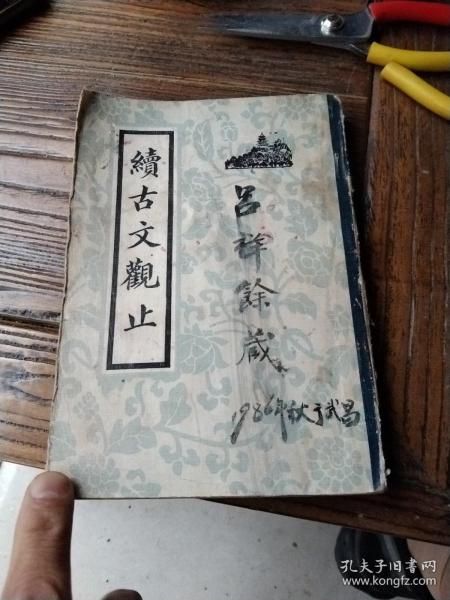 續古文觀止
呂祥餘藏
1986年秋于武昌
孔夫子旧书网
www.kongfz.com